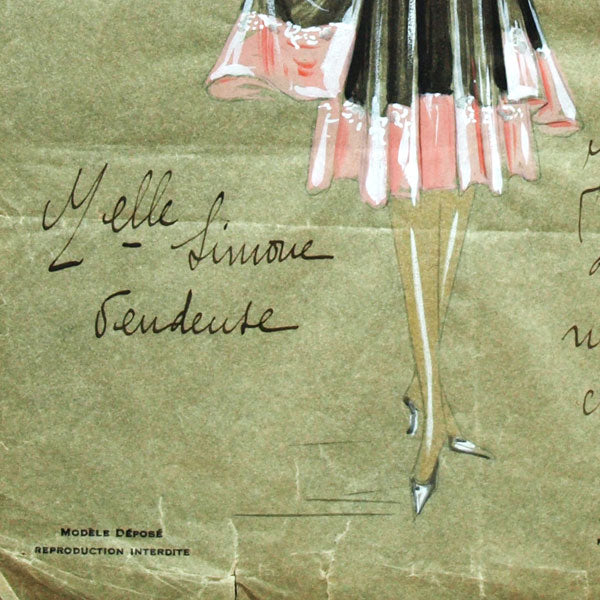 Melle Simone
Vendeuse
MODÈLE DÉPOSÉ
REPRODUCTION INTERDITE